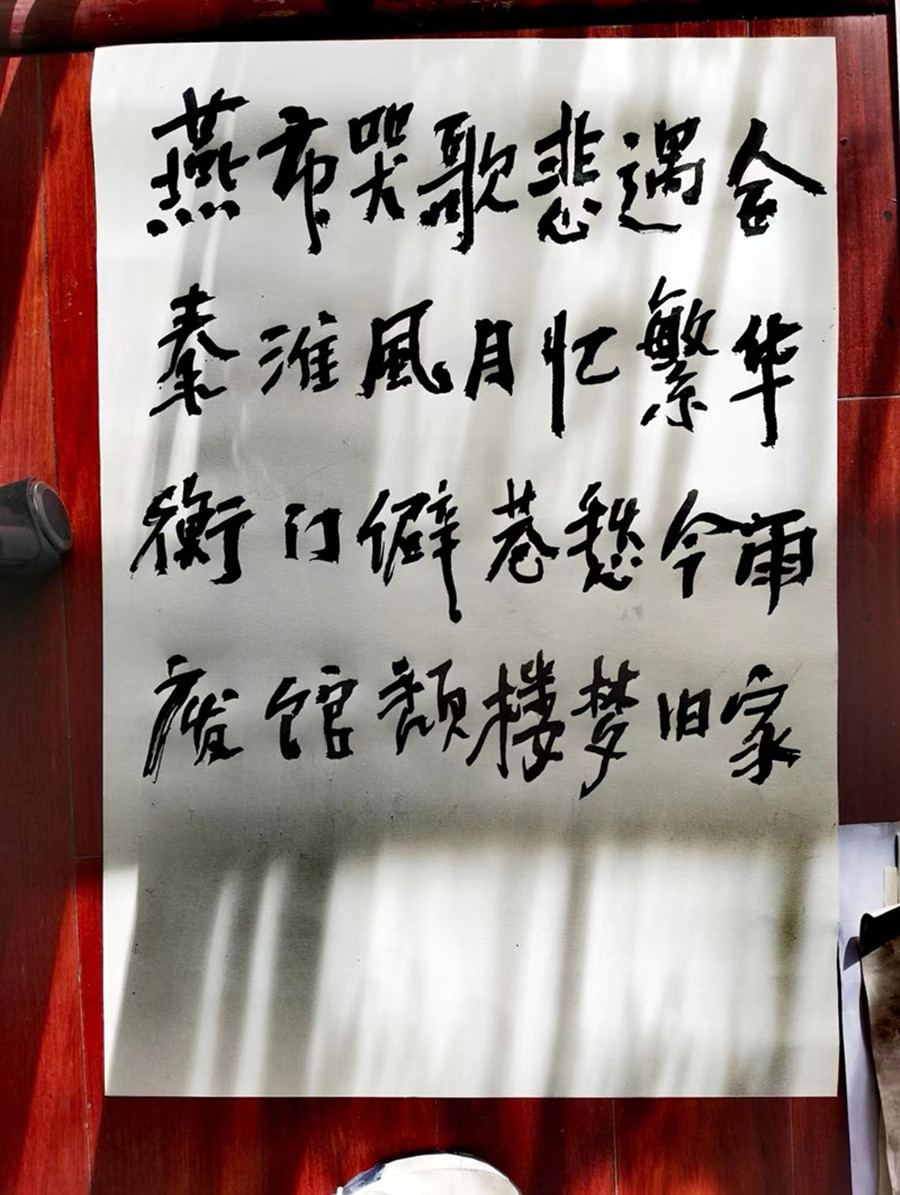 燕市哭歌悲遇合
秦淮風月忆繁华
衡门僻巷愁今雨
废馆颓楼梦旧家